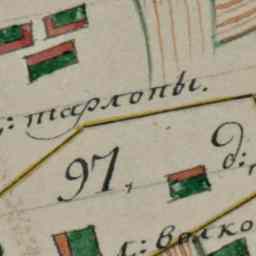 : тарлопы.
97,
д:
д: волко